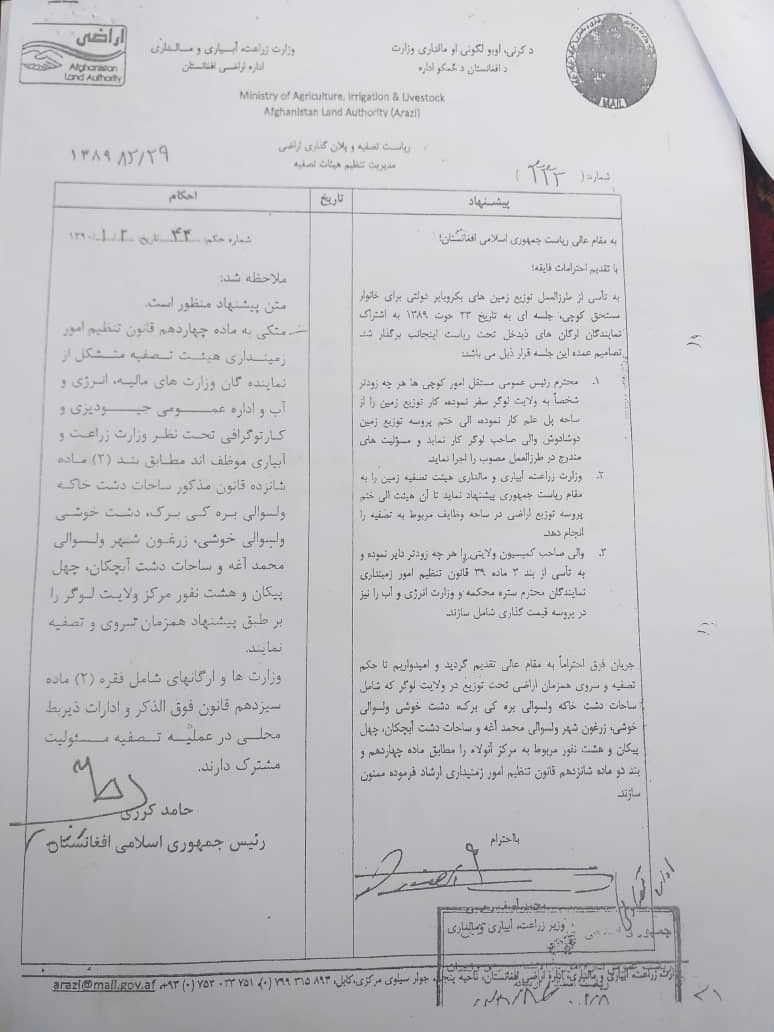 اراضی
Afghanistan
Land Authority
وزارت زراعت، آبیاری و مالداری
اداره اراضی افغانستان
د کرنې، اوبو لگولی او مالداری وزارت
د افغانستان د ځمکو اداره
MAIL
Ministry of Agriculture, Irrigation & Livestock
Afghanistan Land Authority (Arazi)
ریاست تصفیه و پلان گذاری اراضی
مدیریت تنظیم هیئات تصفیه
۱۳۸۹/۱۲/۲۹
شماره: (۲۲۳)
پیشنهاد
تاریخ
احکام
به مقام عالی ریاست جمهوری اسلامی افغانستان!
با تقدیم احترامات فایقه؛
به تأسی از طرزالعمل توزیع زمین های بکروبایر دولتی برای خانوار
مستحق کوچی، جلسه ای به تاریخ ۲۳ حوت ۱۳۸۹ به اشتراک
نمایندگان ارگان های ذیدخل تحت ریاست اینجانب برگذار شد.
تصامیم عمده این جلسه قرار ذیل می باشند:
۱. محترم رئیس عمومی مستقل امور کوچی ها هر چه زودتر
شخصاً به ولایت لوگر سفر نموده، کار توزیع زمین را از
ساحه پل علم کار نموده، الی ختم پروسه توزیع زمین
دوشادوش والی صاحب لوگر کار نماید و مسؤلیت های
مندرج در طرزالعمل مصوب را اجرا نماید.
۲. وزارت زراعت، آبیاری و مالداری هیئت تصفیه زمین را به
مقام ریاست جمهوری پیشنهاد نماید تا آن هیئت الی ختم
پروسه توزیع اراضی در ساحه وظایف مربوط به تصفیه را
انجام دهد.
۳. والی صاحب کمیسیون ولایتی را هر چه زودتر دایر نموده و
به تأسی از بند ۳ ماده ۳۹ قانون تنظیم امور زمینداری
نمایندگان محترم ستره محکمه و وزارت انرژی و آب را نیز
در پروسه قیمت گذاری شامل سازند.
جریان فوق احتراماً به مقام عالی تقدیم گردید و امیدواریم تا حکم
تصفیه و سروی همزمان اراضی تحت توزیع در ولایت لوگر که شامل
ساحات دشت خاکه ولسوالی بره کی برک، دشت خوشی ولسوالی
خوشی، زرغون شهر ولسوالی محمد آغه و ساحات دشت آبچکان، چهل
پیکان و هشت نفور مربوط به مرکز آنولاء را مطابق ماده چهاردهم و
بند دو ماده شانزدهم قانون تنظیم امور زمینداری ارشاد فرموده ممنون
سازند.
بااحترام
وزیر زراعت، آبیاری و مالداری
شماره حکم: ۴۴ تاریخ: ۱۳۹۰/۱/۲
ملاحظه شد:
متن پیشنهاد منظور است.
متکی به ماده چهاردهم قانون تنظیم امور
زمینداری هیئت تصفیه متشکل از
نماینده گان وزارت های مالیه، انرژی و
آب و اداره عمومی جیودیزی و
کارتوگرافی تحت نظر وزارت زراعت و
آبیاری موظف اند مطابق بند (۲) ماده
شانزده قانون مذکور ساحات دشت خاکه
ولسوالی بره کی برک، دشت خوشی
ولسوالی خوشی، زرغون شهر ولسوالی
محمد آغه و ساحات دشت آبچکان، چهل
پیکان و هشت نفور مرکز ولایت لوگر را
بر طبق پیشنهاد همزمان سروی و تصفیه
نمایند.
وزارت ها و ارگانهای شامل فقره (۲) ماده
سیزدهم قانون فوق الذکر و ادارات ذیربط
محلی در عملیه تصفیه مسئولیت
مشترک دارند.
حامد کرزی
رئیس جمهوری اسلامی افغانستان
وزارت زراعت، آبیاری و مالداری، اداره اراضی افغانستان، ناحیه پنجم، جوار سیلوی مرکزی،کابل، ۸۹۳ ۳۱۵ ۷۹۹ (۰)، ۷۵۱ ۰۳۳ ۷۵۲ (۰) ۹۳+، arazi@mail.gov.af